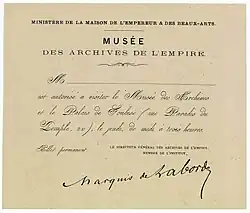 MINISTÈRE DE LA MAISON DE L'EMPEREUR & DES BEAUX-ARTS.
MUSÉE
DES ARCHIVES DE L'EMPIRE.
M
est autorisé à visiter le Musée des Archives
et le Palais de Soubise (rue Paradis du
Temple, 20), le jeudi, de midi à trois heures.
Billet permanent.
LE DIRECTEUR GÉNÉRAL DES ARCHIVES DE L'EMPIRE,
MEMBRE DE L'INSTITUT,
Marquis de Laborde